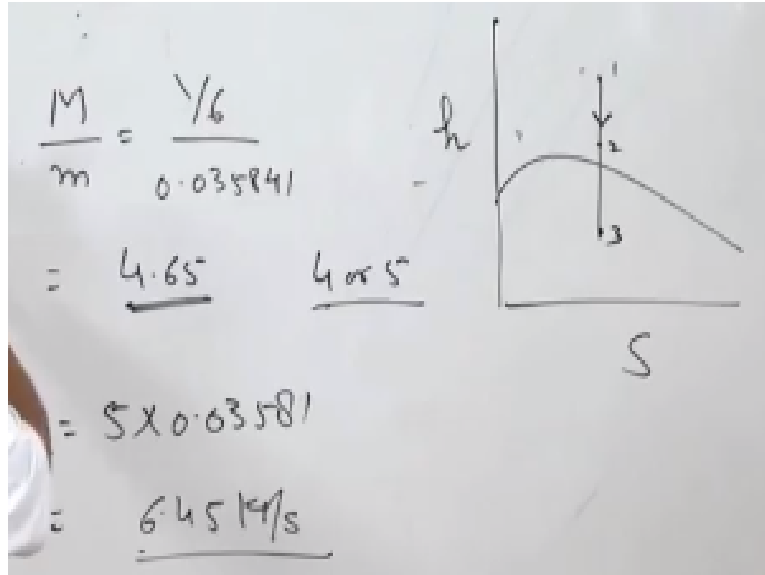 M/m = 1/6 / 0.035841
= 4.65 4 or 5
= 5X0.03581
= 6.45 kg/s
h
1
2
3
S